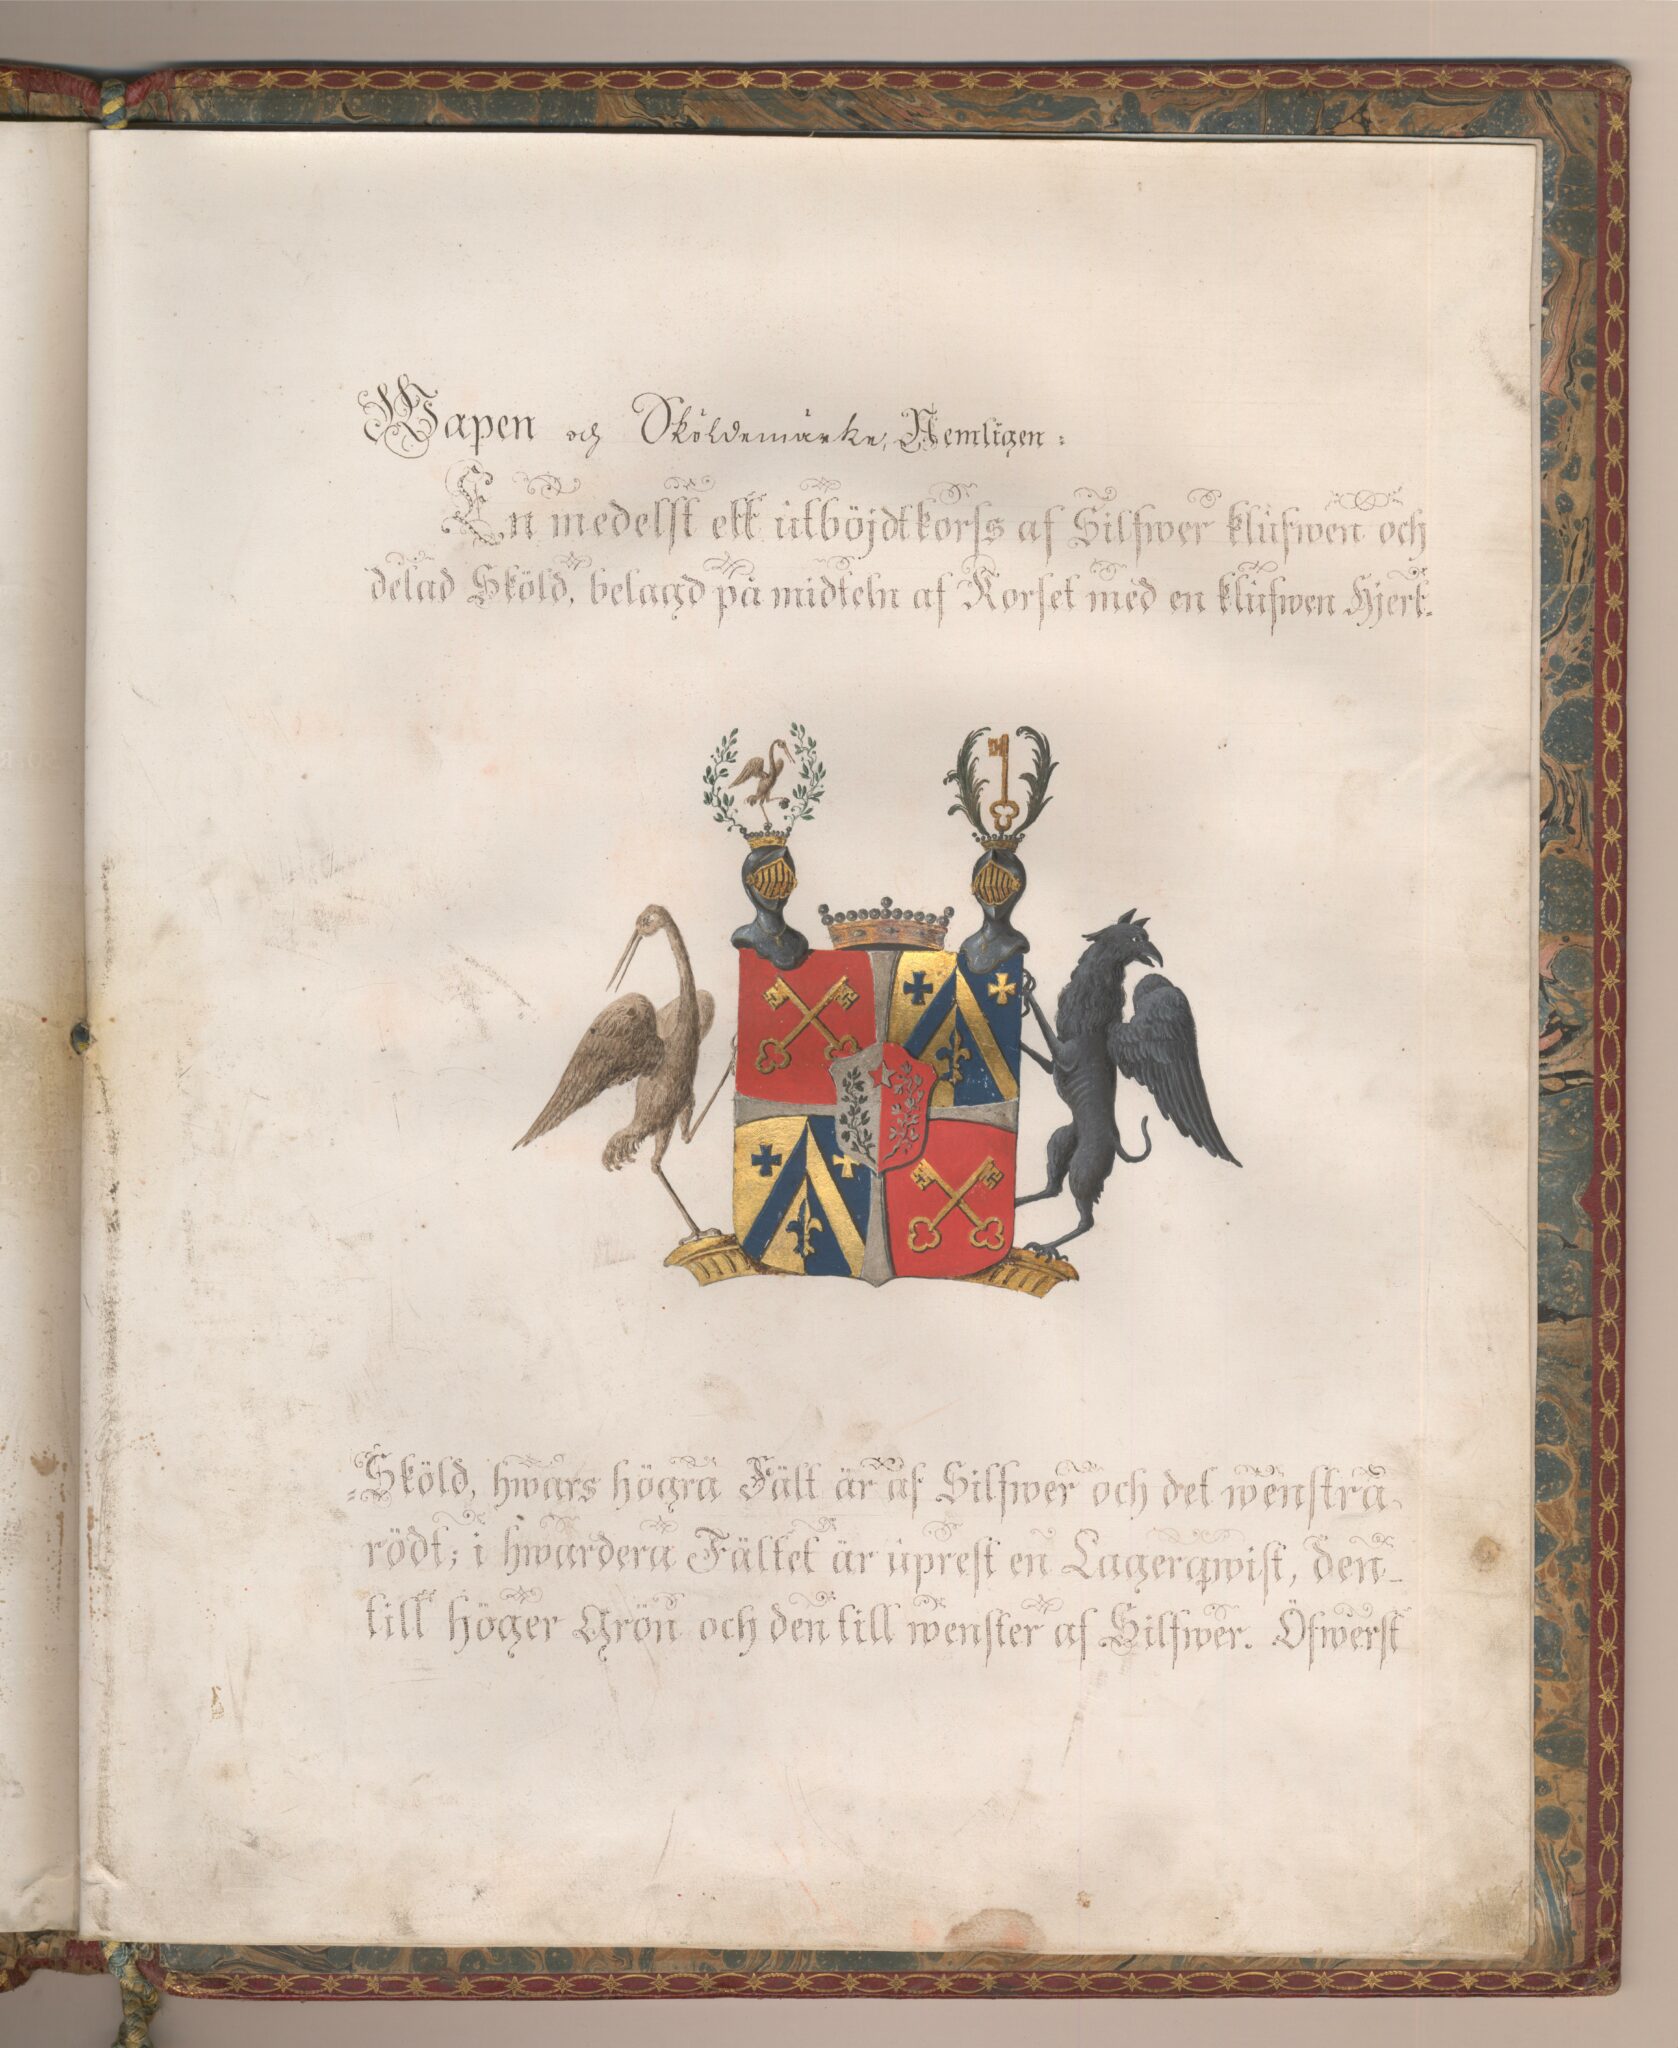 Wapen och Sköldemärke, Nemligen:
En medelst ett utböjdt korss af Silfwer klufwen och
delad Sköld, belagd på midteln af Korset med en klufwen Hjert-
=Sköld, hwars högra Fält är af Silfwer och det wenstra
rödt; i hwardera Fältet är uprest en Lagerqwist, den
till höger Grön och den till wenster af Silfwer. Öfwerst